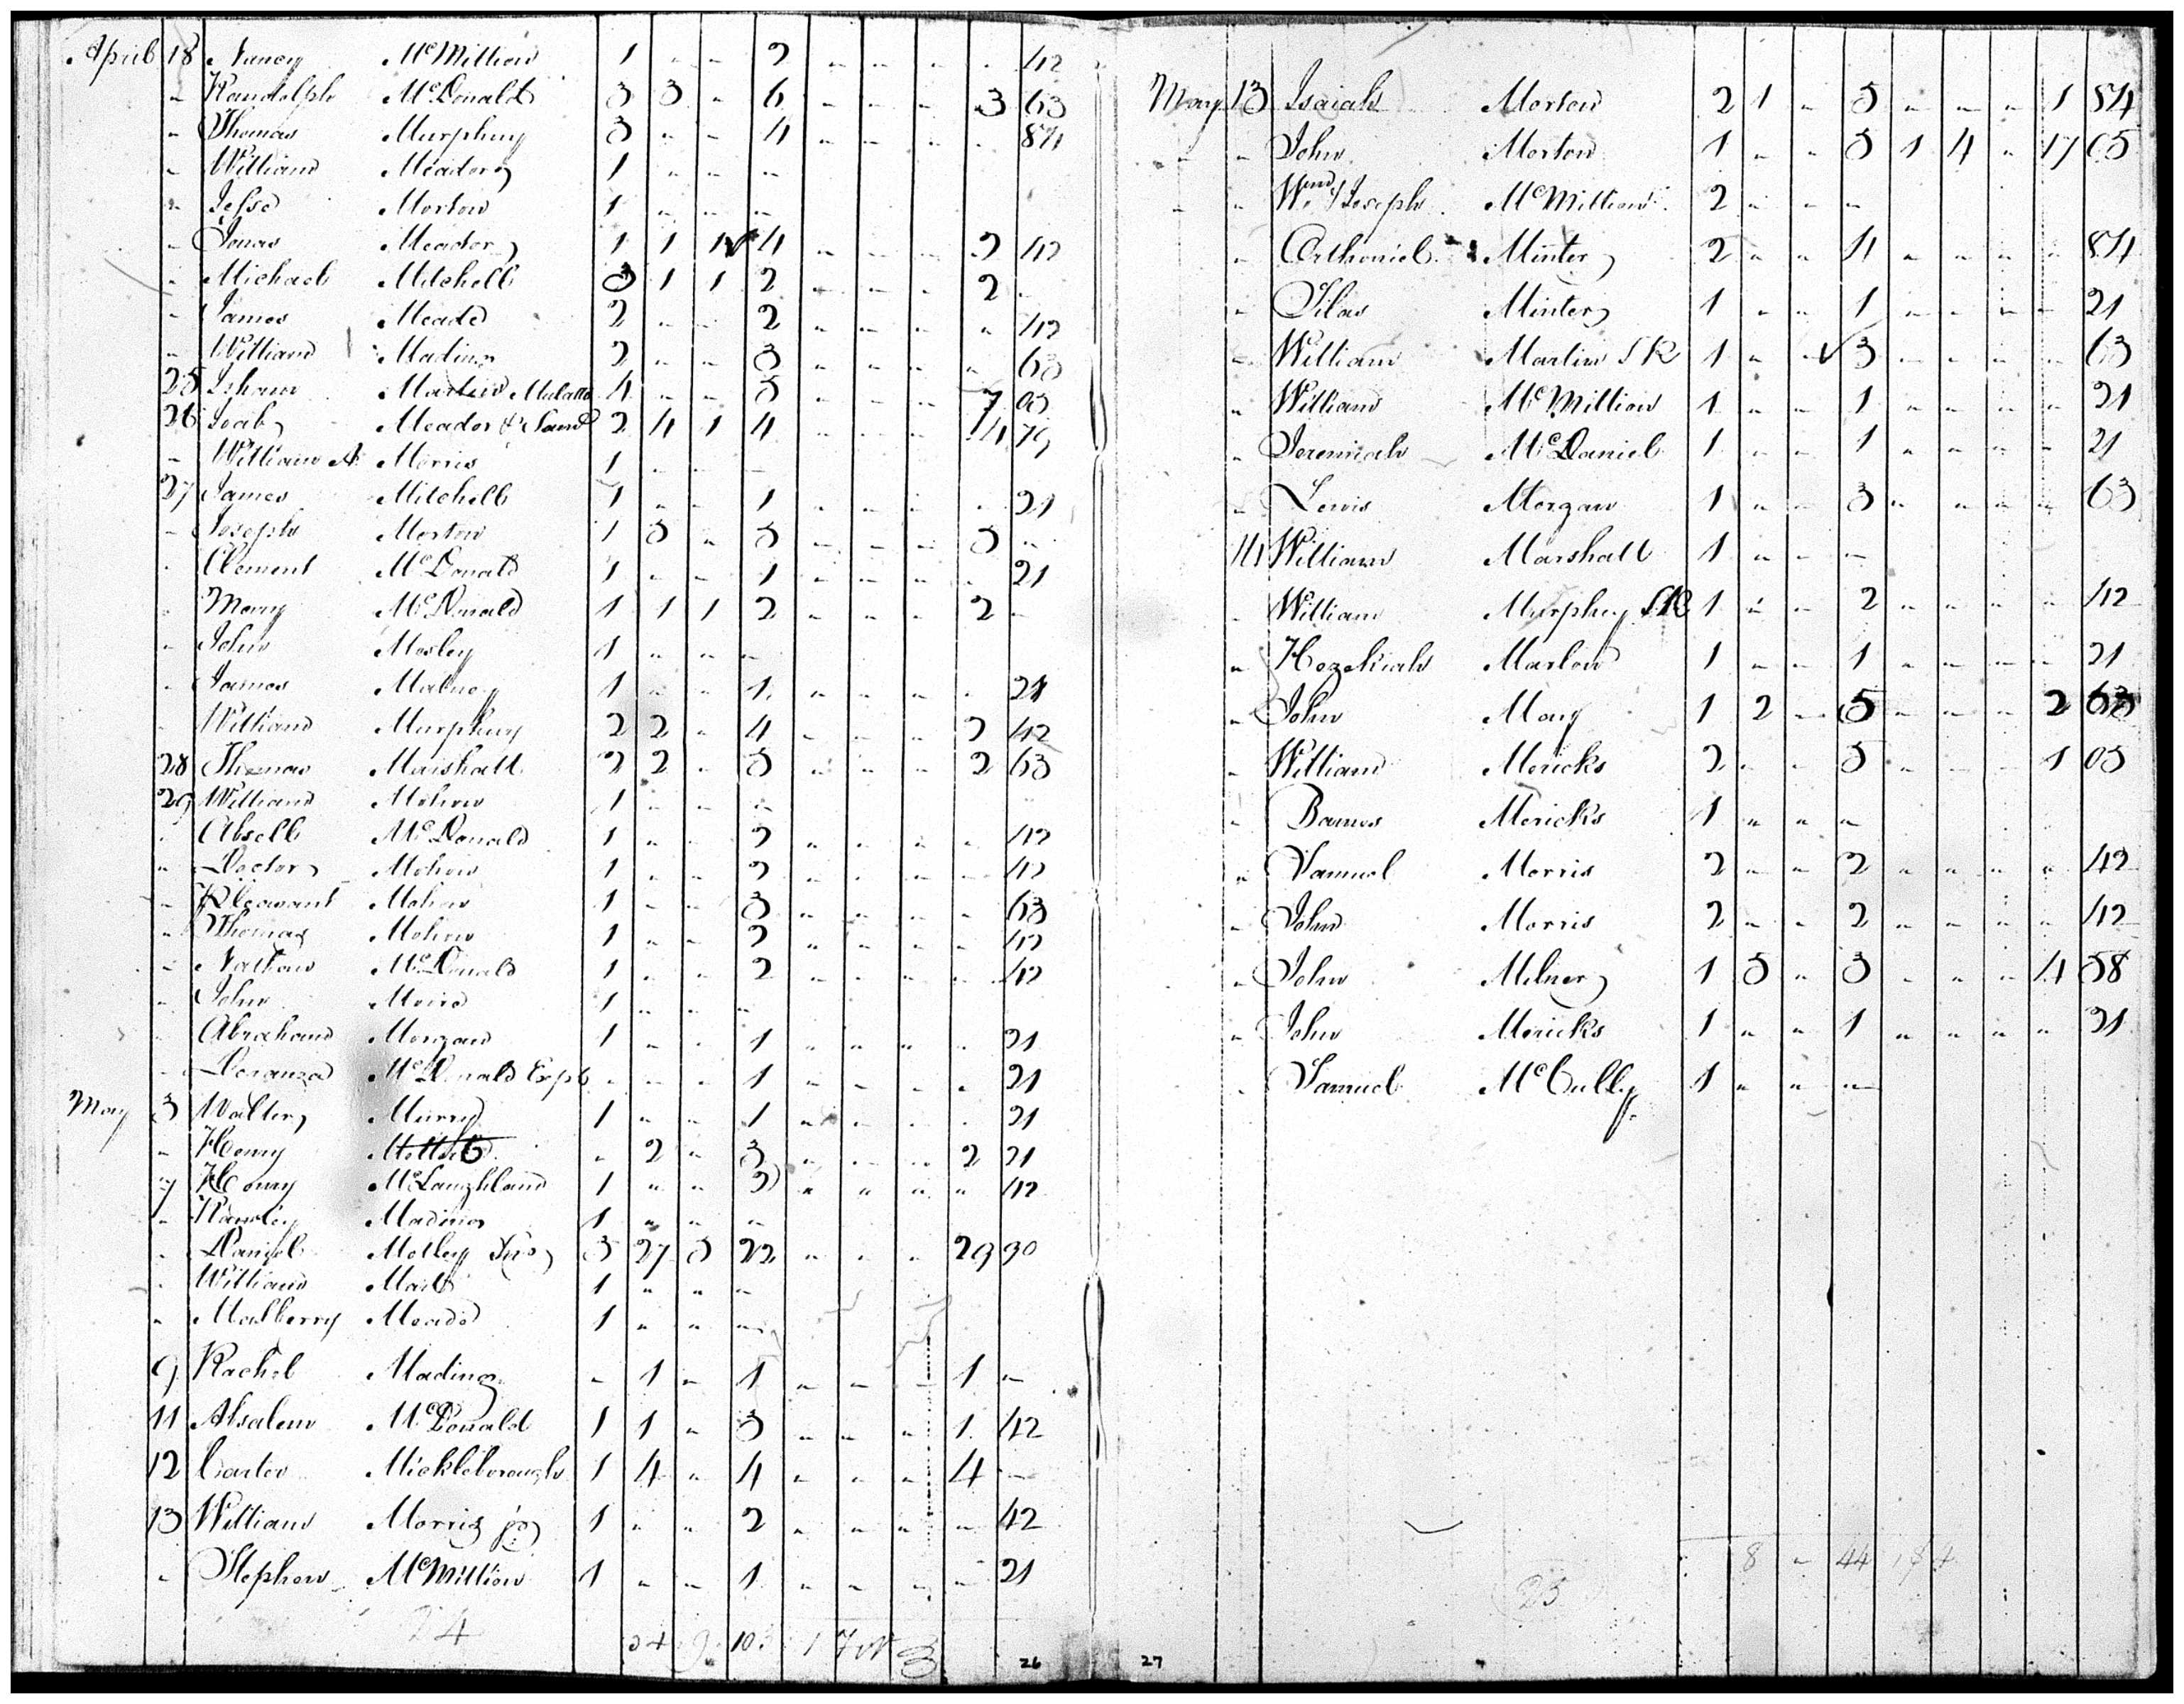 April 18 Nancy McMillion 1 " " 2 " " " " 42
" Randolph McDonald 3 3 " 6 " " " 3 63
" Thomas Murphuy 3 " " 4 " " " " 84
" William Meador 1 " " "
" Jesse Morton 1 " " "
" Jonas Meador 1 1 1 4 " " " 2 42
" Michael Mitchell 3 1 1 2 " " " 2 "
" James Meade 2 " " 2 " " " " 42
" William Mading 2 " " 3 " " " " 63
25 Isham Martin Mulatto 4 " " 5 " " " 1 05
26 Joab Meador & Sam 2 4 1 4 " " " 4 79
" William A Morris 1 " " "
27 James Mitchell 1 " " 1 " " " " 21
" Joseph Morton 1 5 " 5 " " " 5 "
" Clement McDonald 1 " " 1 " " " " 21
" Mary McDonald 1 1 1 2 " " " 2 "
" John Mosley 1 " " "
" James 1 " " 1 " " " " 21
" William Murphuy 2 2 " 4 " " " 2 42
28 Thomas Marshall 2 2 " 5 " " " 2 63
29 William 1 " " "
" McDonald 1 " " 2 " " " " 42
" Doctor 1 " " 2 " " " " 42
" Pleasant 1 " " 3 " " " " 63
" Thomas 1 " " 2 " " " " 42
" Nathan McDonald 1 " " 2 " " " " 42
" John 1 " " "
" Abraham Morgan 1 " " 1 " " " " 21
" McDonald " " " 1 " " " " 21
May 3 Walter Murry 1 " " 1 " " " " 21
" Henry " 2 " 3 " " " 2 21
7 Henry McLaughland 1 " " 2 " " " " 42
" Mading 1 " " "
" Daniel Motley 3 27 5 22 " " " 29 90
" William 1 " " "
" Mulberry Meade 1 " " "
9 Rachel Mading " 1 " 1 " " " 1 "
11 Absalem McDonald 1 1 " 3 " " " 1 42
12 Carter Mickleborough 1 4 " 4 " " " 4 "
13 William Morris jr 1 " " 2 " " " " 42
" Stephen McMillion 1 " " 1 " " " " 21
24
26
May 13 Isaiah Morton 2 1 " 5 " " " 1 84
" " John Morton 1 " " 5 1 4 " 17 05
" Wm Joseph McMillion 2 " " "
" Orthoniel Minter 2 " " 4 " " " " 84
" Silas Minter 1 " " 1 " " " " 21
" William Martin SR 1 " " 3 " " " " 63
" William McMillion 1 " " 1 " " " " 21
" Jeremiah McDaniel 1 " " 1 " " " " 21
" Lewis Morgan 1 " " 3 " " " " 63
14 William Marshall 1 " " "
" William Murphuy SR 1 " " 2 " " " " 42
" Hezekiah Marlow 1 " " 1 " " " " 21
" John May 1 2 " 5 " " " 2 63
" William Mericks 2 " " 5 " " " 1 05
" Barnes Mericks 1 " " "
" Samuel Morris 2 " " 2 " " " " 42
" John Morris 2 " " 2 " " " " 42
" John Milner 1 5 " 3 " " " 4 58
" John Mericks 1 " " 1 " " " " 21
" Samuel McCully 1 " " "
8 " 44 1 4
25
27